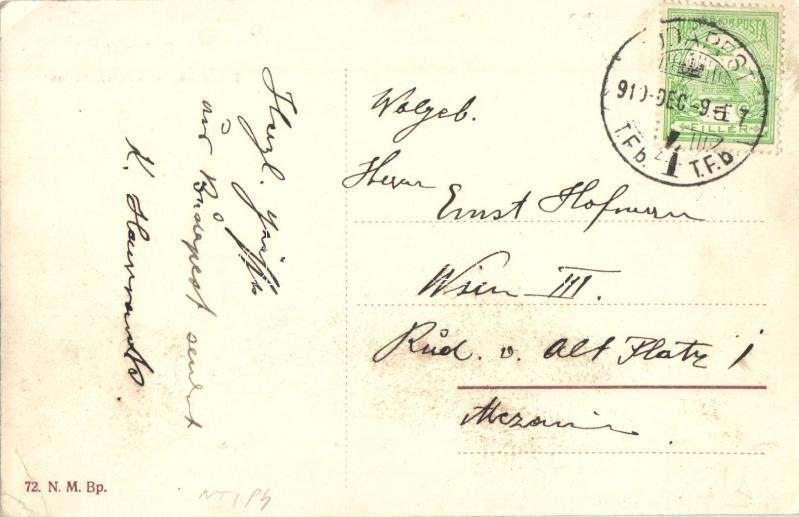 Herzl. Grüße
aus Budapest sendet
K.
Wolgeb.
Herrn
Ernst Hofmann
Wien III.
Rud. v. Alt Platz 1
Mezanin
MAGYAR KIR. POSTA
FILLÉR
BUDAPEST
910 DEC -9
T.F.b. T.F.b
72. N. M. Bp.